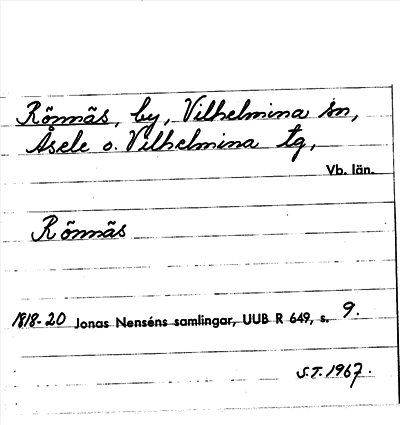 Rönnäs, by, Vilhelmina sn,
Åsele o. Vilhelmina tg,
Vb. län.
Rönnäs
1818-20 Jonas Nenséns samlingar, UUB R 649, s. 9.
S.T. 1967.